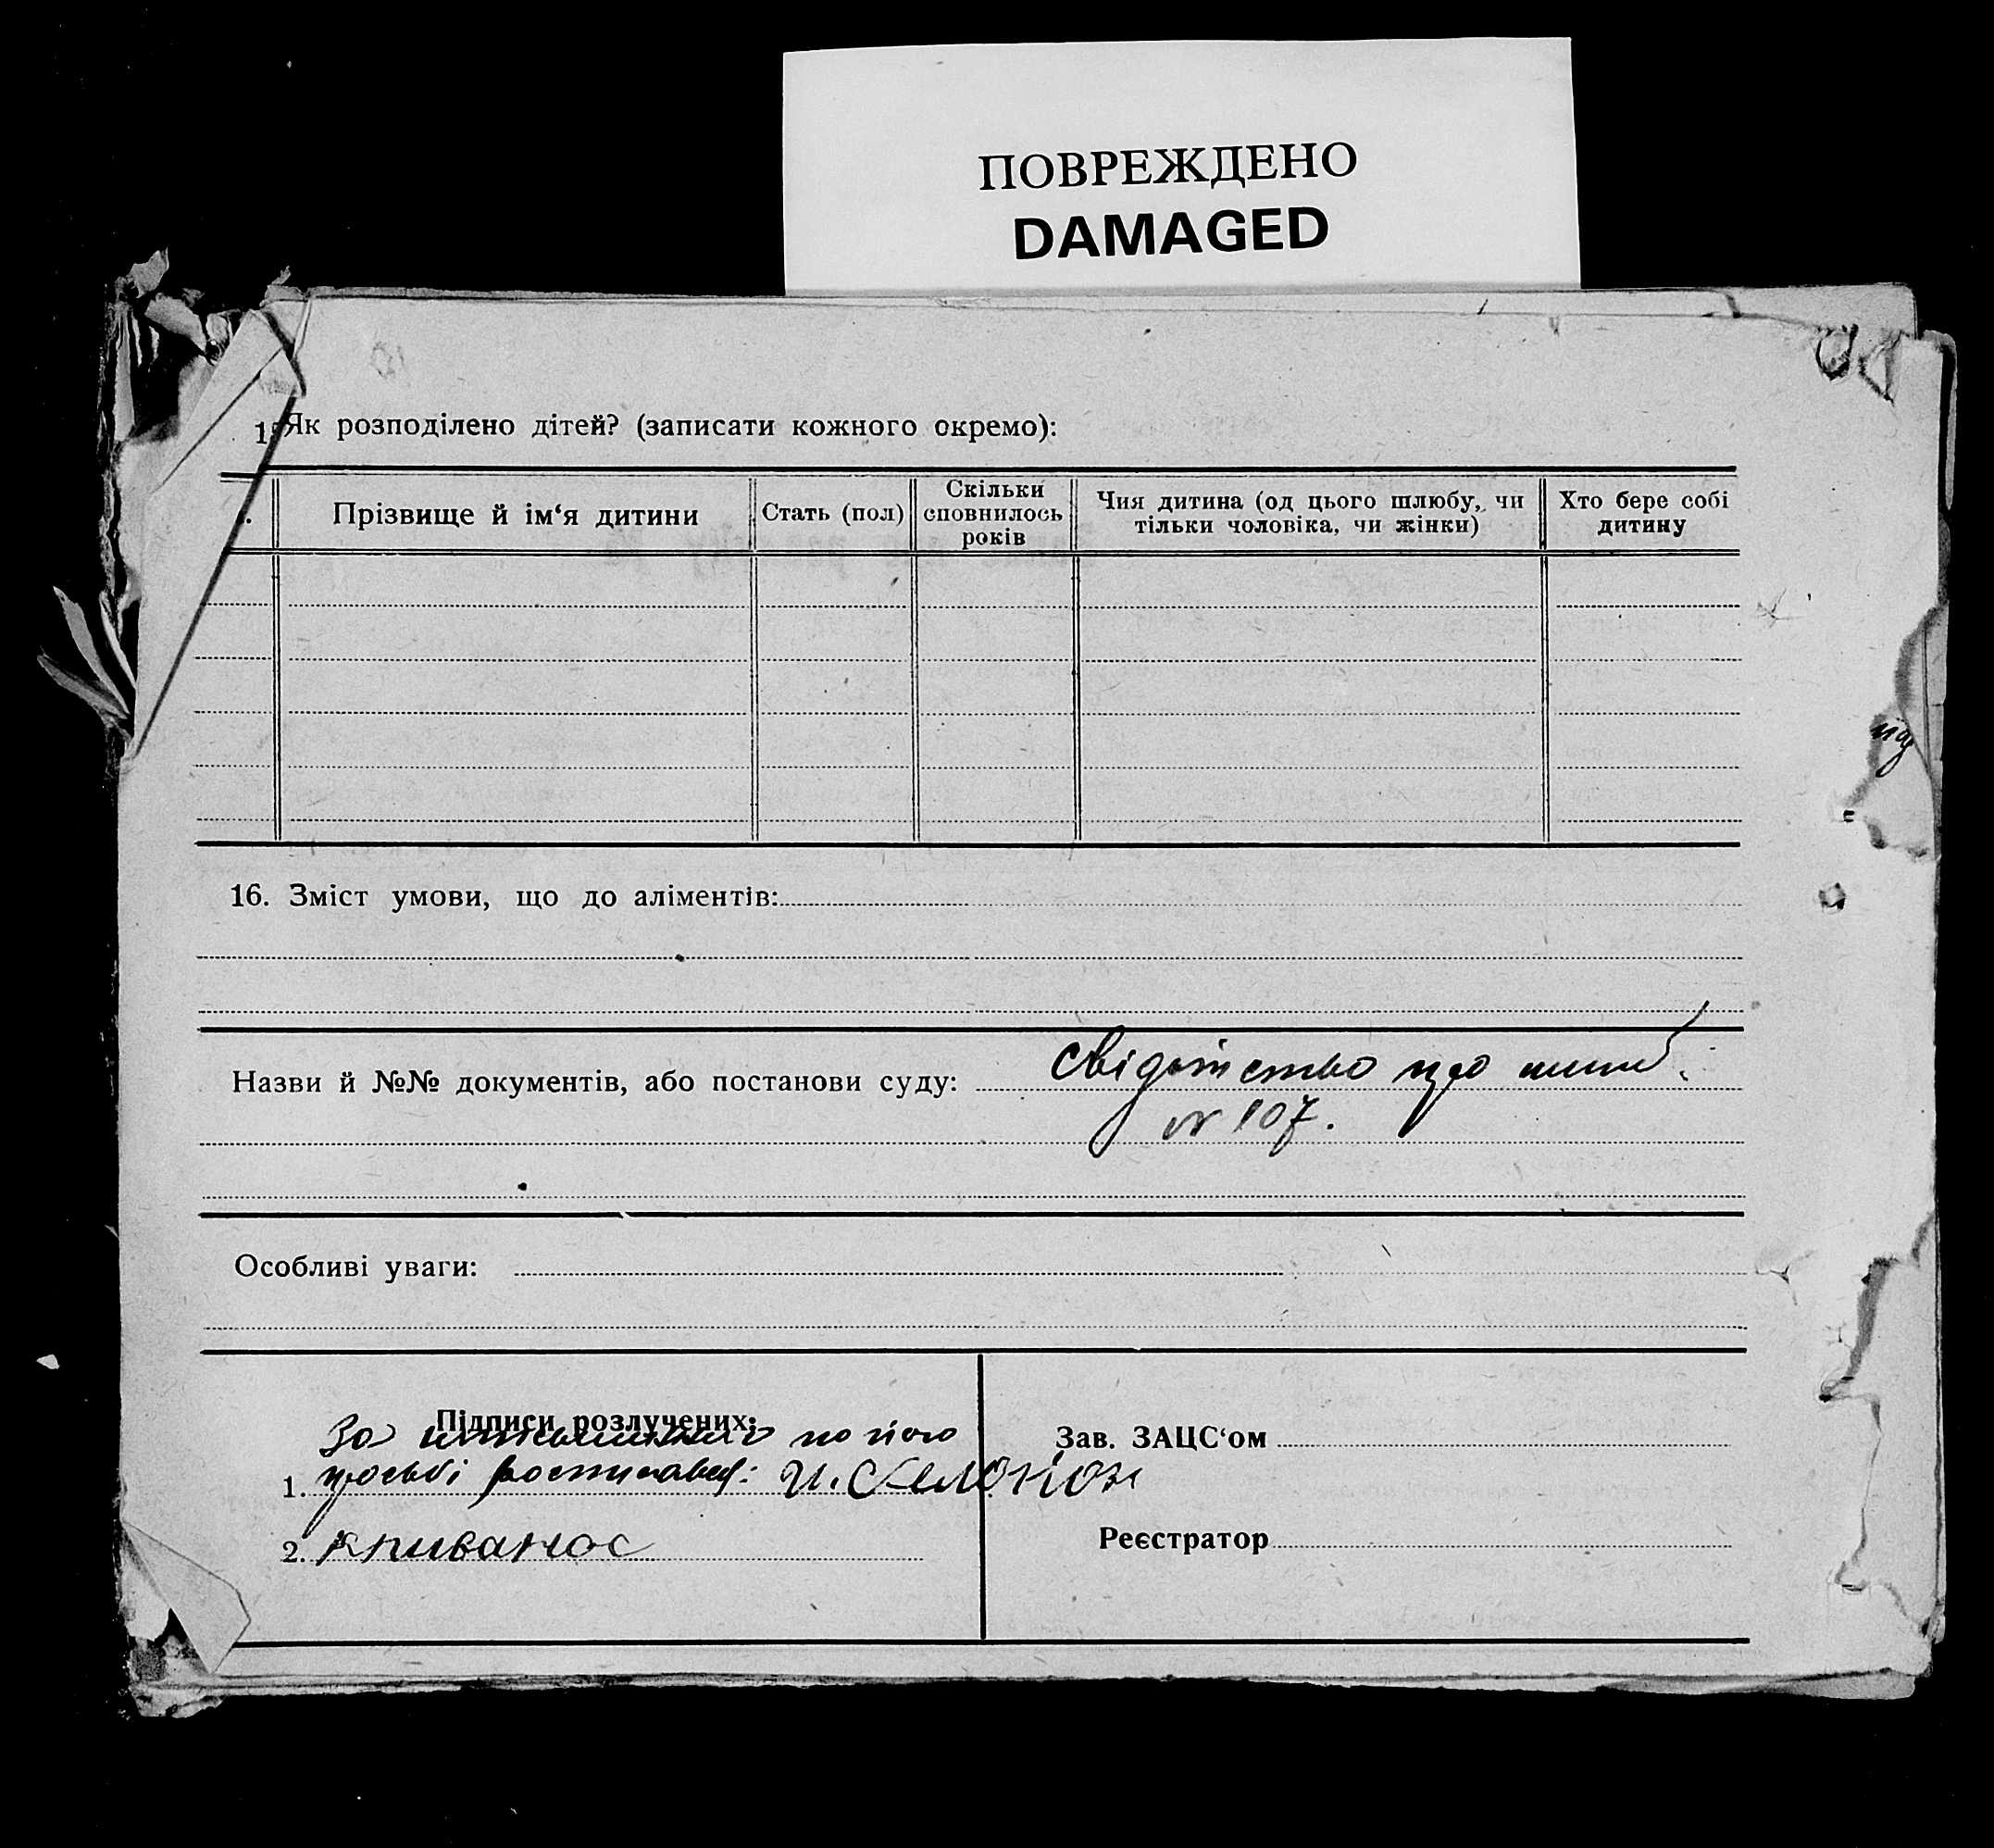 ПОВРЕЖДЕНО
DAMAGED
1 Як розподілено дітей? (записати кожного окремо):
Прізвище й ім‘я дитини
Стать (пол)
Скільки сповнилось років
Чия дитина (од цього шлюбу, чи тільки чоловіка, чи жінки)
Хто бере собі дитину
16. Зміст умови, що до аліментів:
Назви й №№ документів, або постанови суду: свідотство про шлюб.
№ 107.
Особливі уваги:
Підписи розлучених:
За по його
1. просьбі росписавсь:
2. Криванос
Зав. ЗАЦС‘ом
Реєстратор